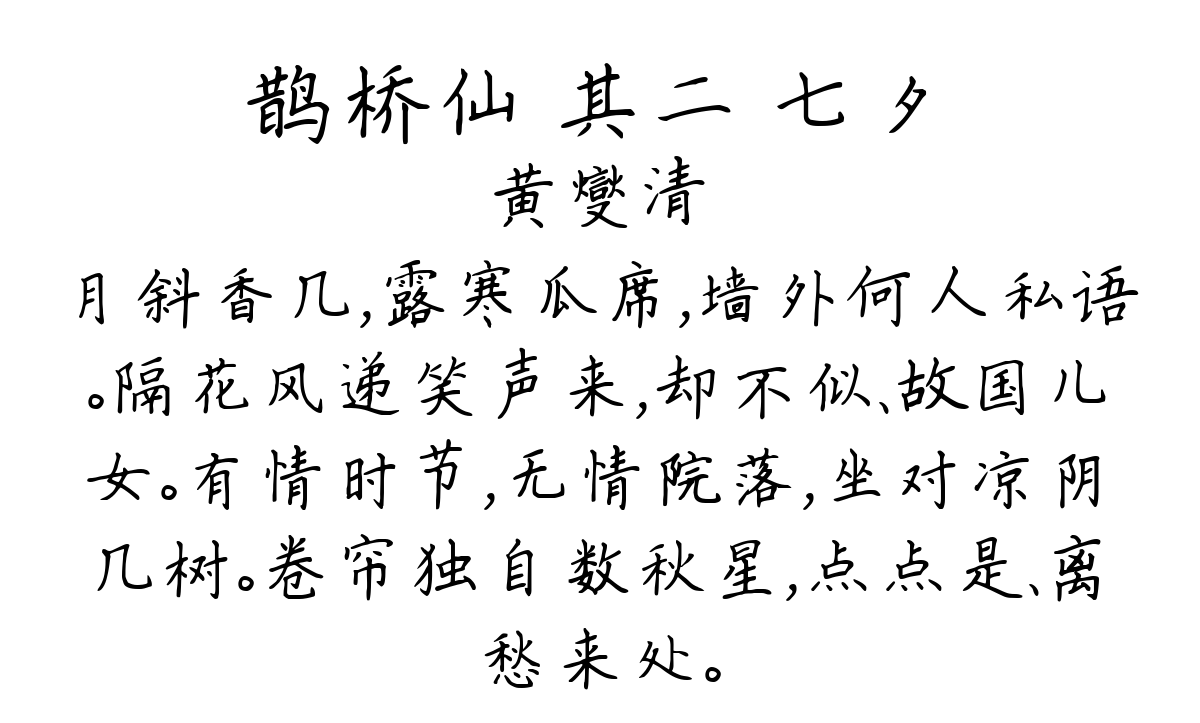 鹊桥仙 其二 七夕
黄燮清
月斜香几,露寒瓜席,墙外何人私语
。隔花风递笑声来,却不似、故国儿
女。有情时节,无情院落,坐对凉阴
几树。卷帘独自数秋星,点点是、离
愁来处。